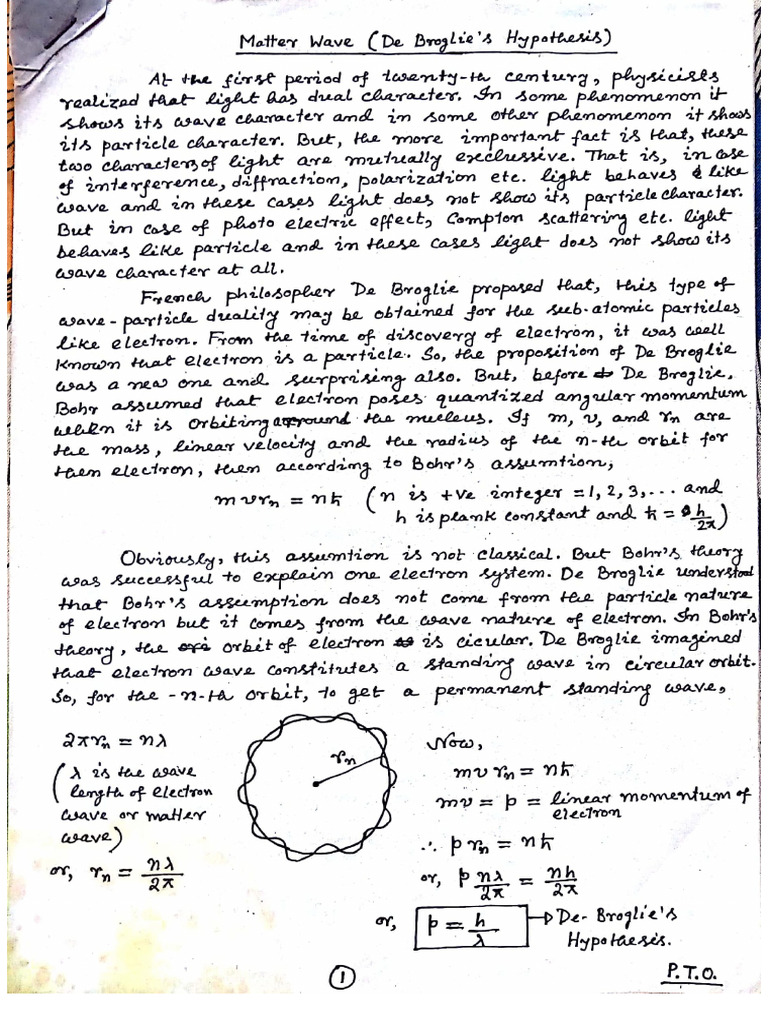 Matter Wave (De Broglie's Hypothesis)
At the first period of twenty-th century, physicists
realized that light has dual character. In some phenomenon it
shows its wave character and in some other phenomenon it shows
its particle character. But, the more important fact is that, these
two characters of light are mutually exclussive. That is, in case
of interference, diffraction, polarization etc. light behaves like
wave and in these cases light does not show its particle character.
But in case of photo electric effect, Compton scattering etc. light
behaves like particle and in these cases light does not show its
wave character at all.
French philosopher De Broglie proposed that, this type of
wave-particle duality may be obtained for the sub-atomic particles
like electron. From the time of discovery of electron, it was well
known that electron is a particle. So, the proposition of De Broglie
was a new one and surprising also. But, before De Broglie,
Bohr assumed that electron poses quantized angular momentum
when it is orbiting around the nucleus. If m, v, and rₙ are
the mass, linear velocity and the radius of the n-th orbit for
then electron, then according to Bohr's assumtion,
m v rₙ = nħ (n is +ve integer = 1, 2, 3, ... and
h is plank constant and ħ = h/2π)
Obviously, this assumtion is not classical. But Bohr's theory
was successful to explain one electron system. De Broglie understood
that Bohr's assumption does not come from the particle nature
of electron but it comes from the wave nature of electron. In Bohr's
theory, the orbit of electron is cicular. De Broglie imagined
that electron wave constitutes a standing wave in circular orbit.
So, for the -n-th orbit, to get a permanent standing wave,
2πrₙ = nλ
(λ is the wave
length of electron
wave or matter
wave)
or, rₙ = nλ/2π
rₙ
Now,
mv rₙ = nħ
mv = p = linear momentum of
electron
∴ p rₙ = nħ
or, p nλ/2π = nh/2π
or, p = h/λ → De-Broglie's
Hypothesis.
1
P.T.O.